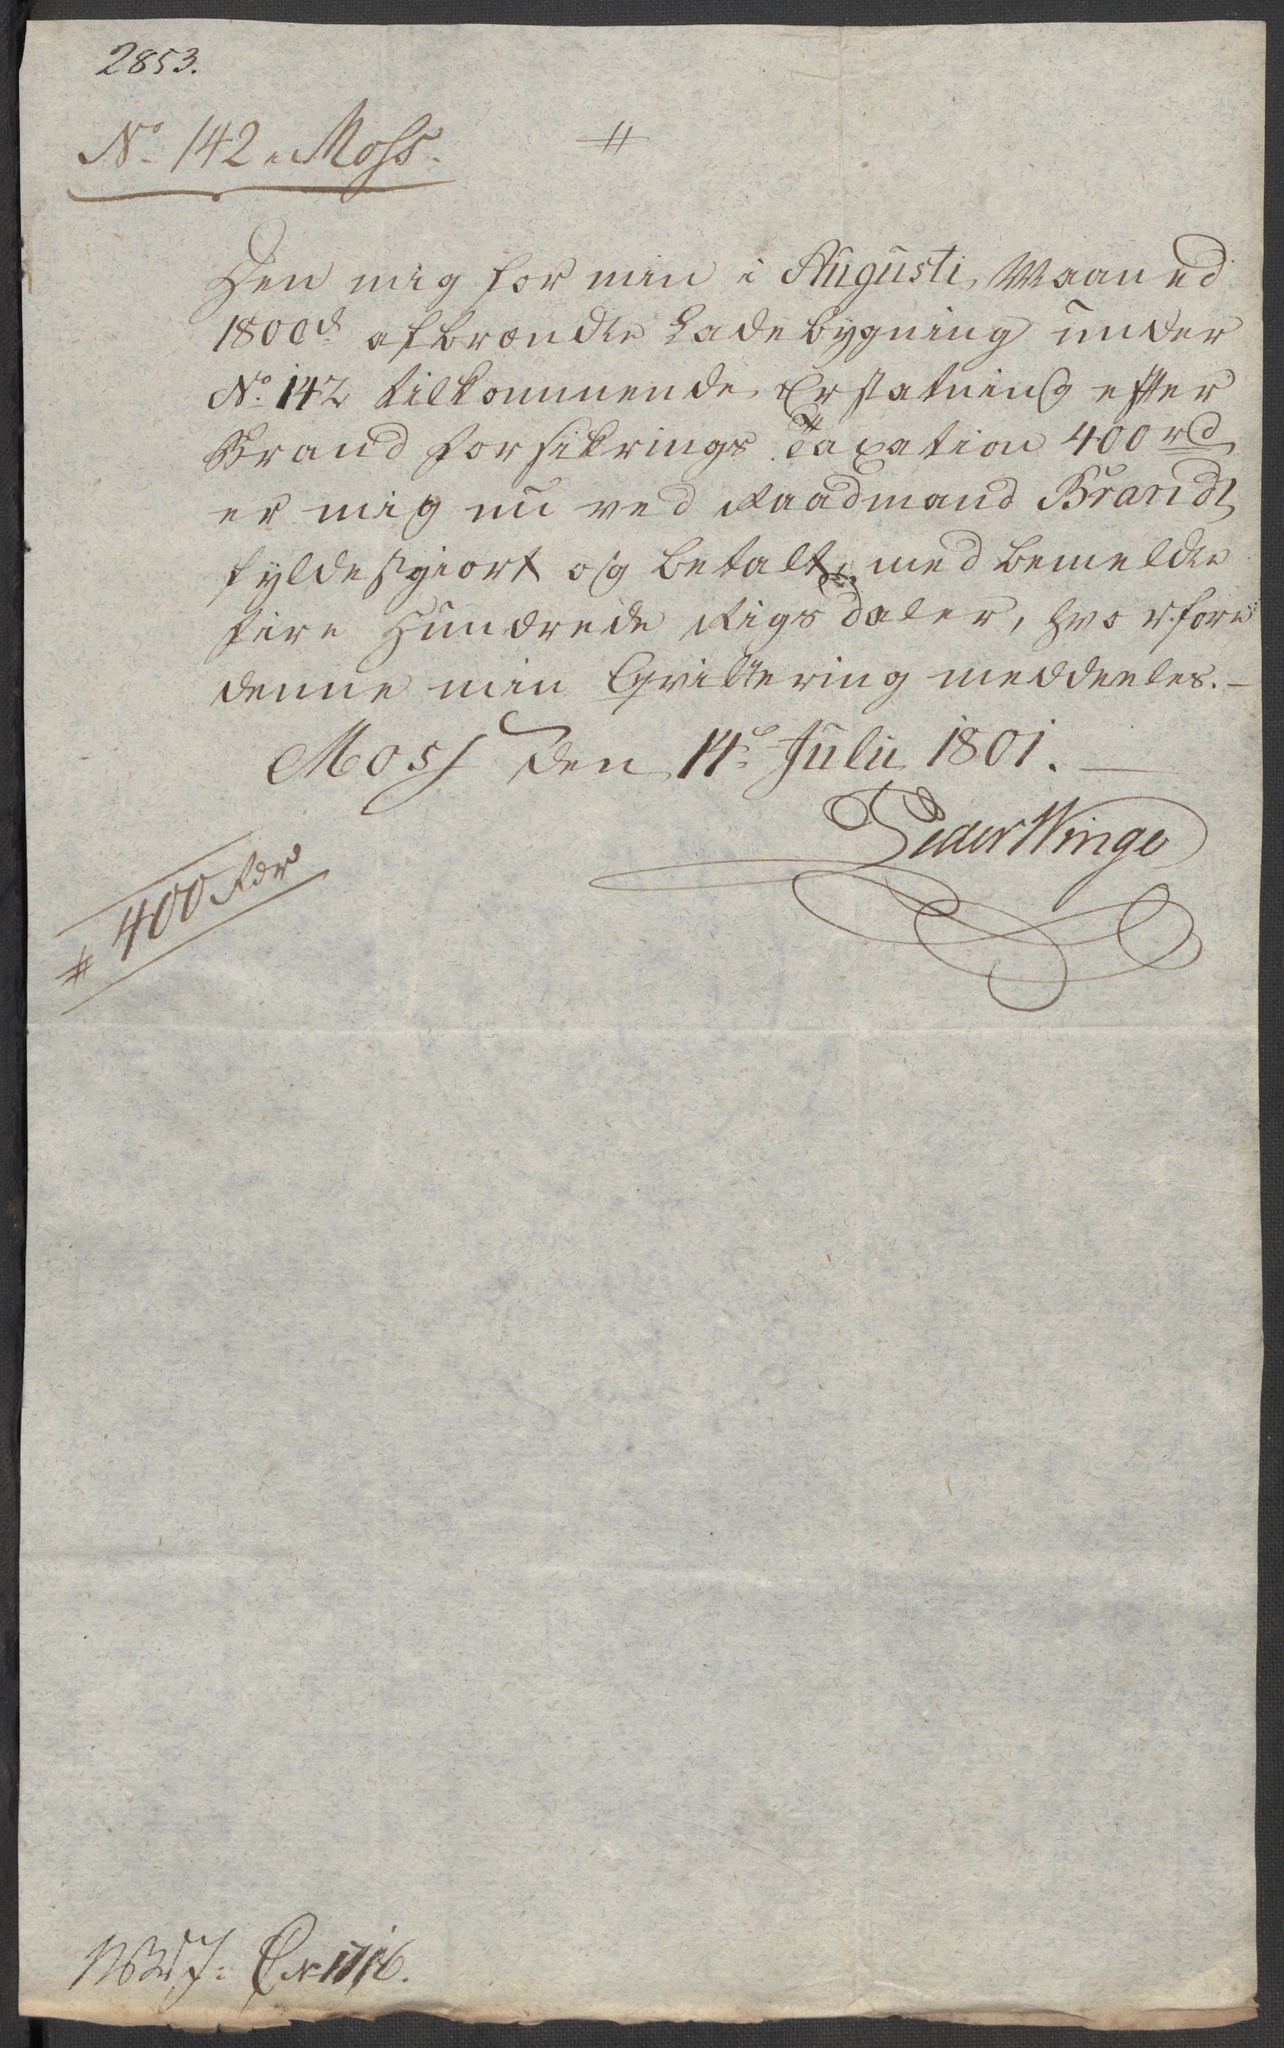 2853.
No. 142. Moss.
Den mig for min i Augusti Maaned
1800 afbrændte Ladebygning under
No. 142 tilkommende Erstatning efter
Brand forsikrings Taxation 400 rd
er mig nu ved Raadmand Brandt
fyldestgiort og betalt med bemeldte
fire Hundrede Rigsdaler, hvorfore
denne min Qvittering meddeeles. -
Moss den 14de Julii 1801. -
Peder Winge
# 400 Rdr